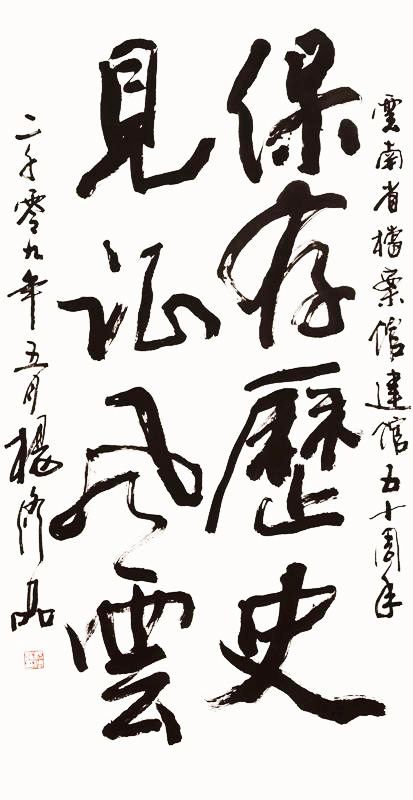 雲南省檔案馆建馆五十周年
保存歷史
見证风雲
二千零九年五月楊修品